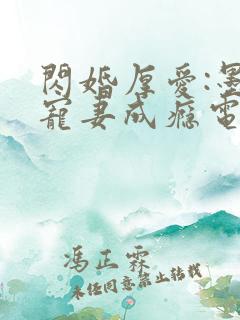 閃婚厚愛:墨
寵妻成癮電
馮正霖
未經同意禁止轉載